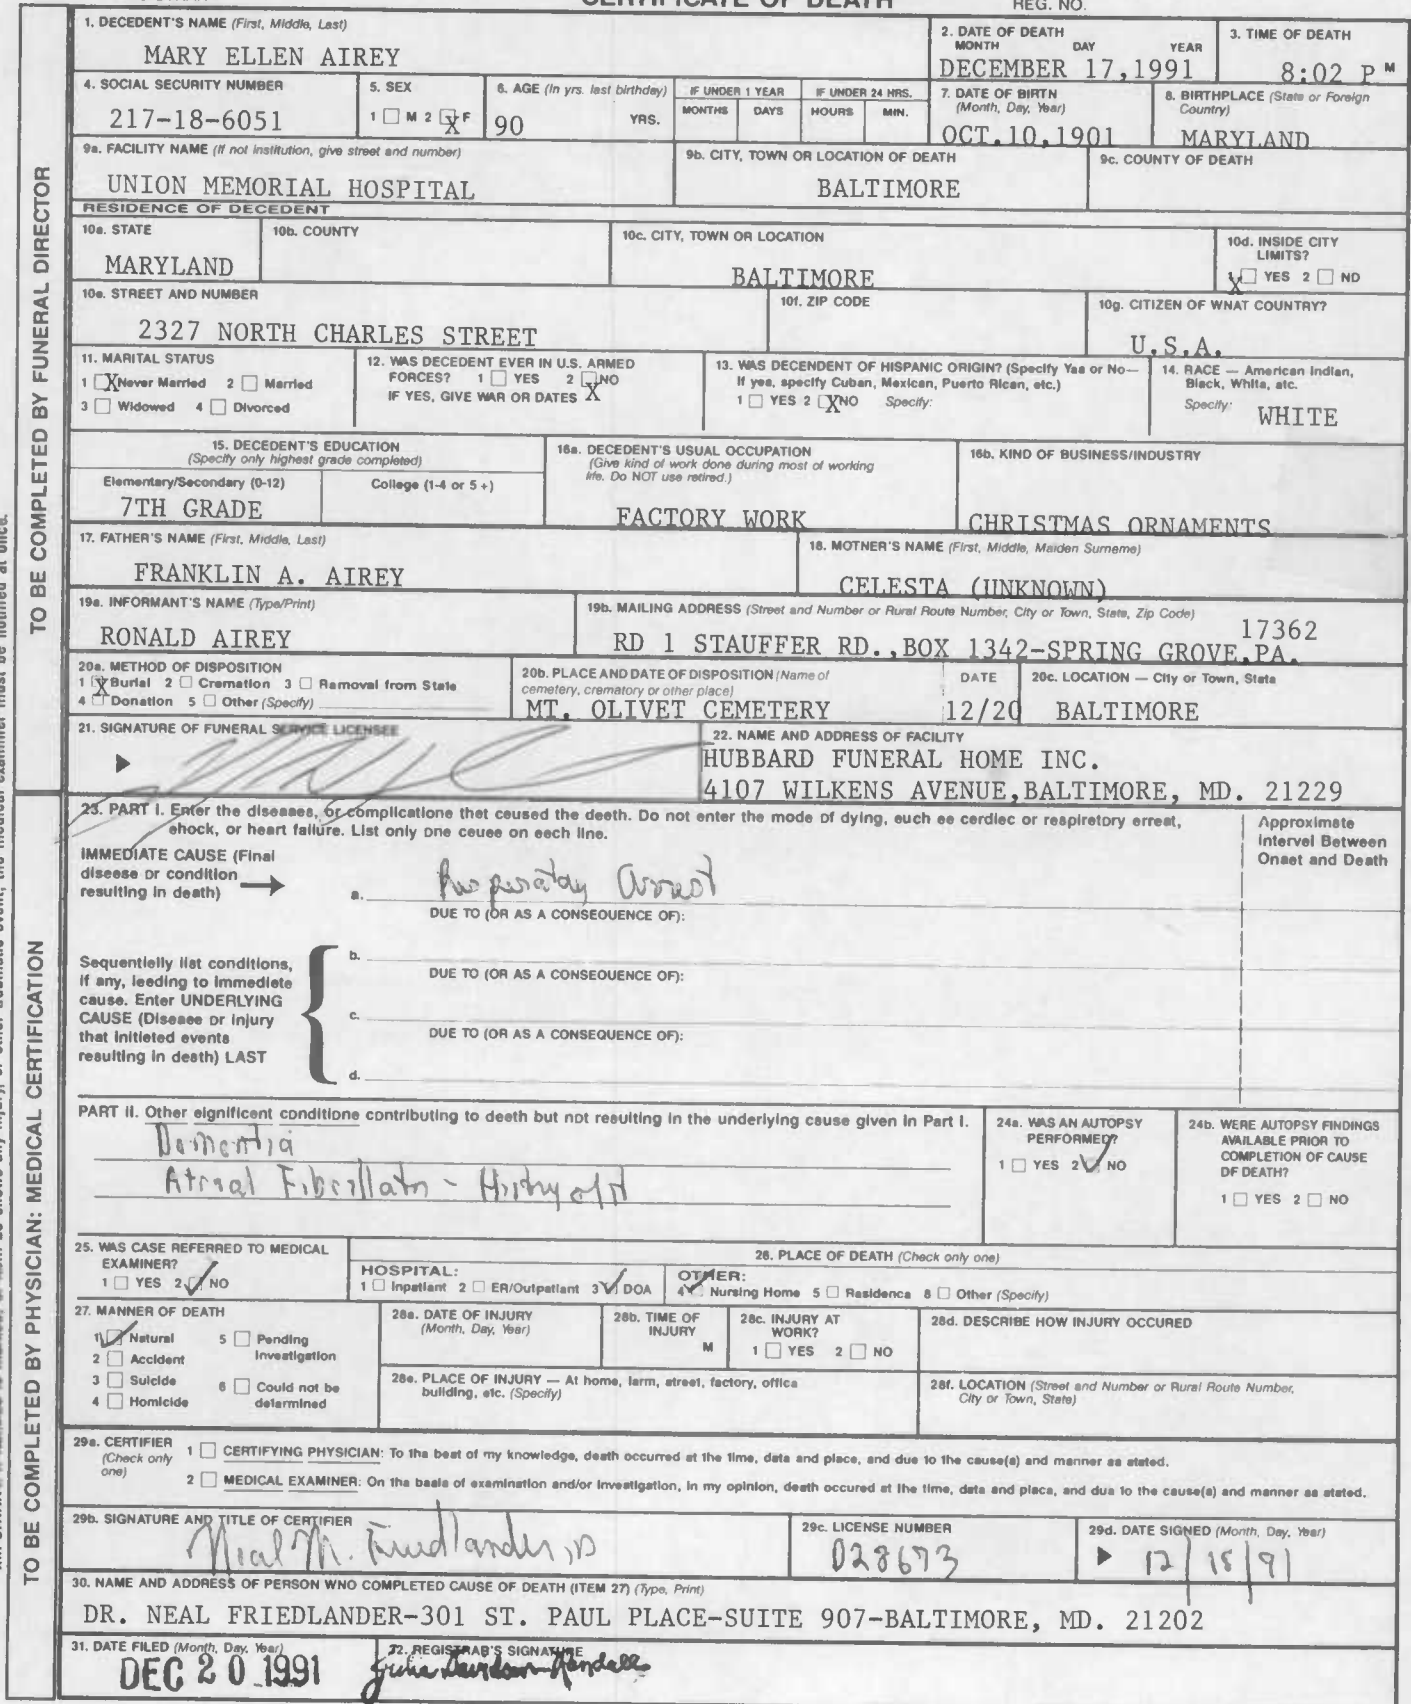 CERTIFICATE OF DEATH
REG. NO.
1. DECEDENT'S NAME (First, Middle, Last)
MARY ELLEN AIREY
2. DATE OF DEATH
MONTH DAY YEAR
DECEMBER 17,1991
3. TIME OF DEATH
8:02 P M
4. SOCIAL SECURITY NUMBER
217-18-6051
5. SEX
1 ☐ M 2 ☒ F
6. AGE (In yrs. last birthday)
90 YRS.
IF UNDER 1 YEAR
MONTHS DAYS
IF UNDER 24 HRS.
HOURS MIN.
7. DATE OF BIRTH
(Month, Day, Year)
OCT.10,1901
8. BIRTHPLACE (State or Foreign
Country)
MARYLAND
9a. FACILITY NAME (If not institution, give street and number)
UNION MEMORIAL HOSPITAL
9b. CITY, TOWN OR LOCATION OF DEATH
BALTIMORE
9c. COUNTY OF DEATH
RESIDENCE OF DECEDENT
10a. STATE
MARYLAND
10b. COUNTY
10c. CITY, TOWN OR LOCATION
BALTIMORE
10d. INSIDE CITY
LIMITS?
1 ☒ YES 2 ☐ NO
10e. STREET AND NUMBER
2327 NORTH CHARLES STREET
10f. ZIP CODE
10g. CITIZEN OF WHAT COUNTRY?
U.S.A.
11. MARITAL STATUS
1 ☒ Never Married 2 ☐ Married
3 ☐ Widowed 4 ☐ Divorced
12. WAS DECEDENT EVER IN U.S. ARMED
FORCES? 1 ☐ YES 2 ☒ NO
IF YES, GIVE WAR OR DATES
13. WAS DECENDENT OF HISPANIC ORIGIN? (Specify Yes or No—
If yes, specify Cuban, Mexican, Puerto Rican, etc.)
1 ☐ YES 2 ☒ NO Specify:
14. RACE — American Indian,
Black, White, etc.
Specify: WHITE
15. DECEDENT'S EDUCATION
(Specify only highest grade completed)
Elementary/Secondary (0-12) College (1-4 or 5+)
7TH GRADE
16a. DECEDENT'S USUAL OCCUPATION
(Give kind of work done during most of working
life. Do NOT use retired.)
FACTORY WORK
16b. KIND OF BUSINESS/INDUSTRY
CHRISTMAS ORNAMENTS
17. FATHER'S NAME (First, Middle, Last)
FRANKLIN A. AIREY
18. MOTHER'S NAME (First, Middle, Maiden Surname)
CELESTA (UNKNOWN)
19a. INFORMANT'S NAME (Type/Print)
RONALD AIREY
19b. MAILING ADDRESS (Street and Number or Rural Route Number, City or Town, State, Zip Code)
17362
RD 1 STAUFFER RD.,BOX 1342-SPRING GROVE,PA.
20a. METHOD OF DISPOSITION
1 ☒ Burial 2 ☐ Cremation 3 ☐ Removal from State
4 ☐ Donation 5 ☐ Other (Specify)
20b. PLACE AND DATE OF DISPOSITION (Name of
cemetery, crematory or other place)
MT. OLIVET CEMETERY
DATE
12/20
20c. LOCATION — City or Town, State
BALTIMORE
21. SIGNATURE OF FUNERAL SERVICE LICENSEE
22. NAME AND ADDRESS OF FACILITY
HUBBARD FUNERAL HOME INC.
4107 WILKENS AVENUE,BALTIMORE, MD. 21229
TO BE COMPLETED BY FUNERAL DIRECTOR
23. PART I. Enter the diseases, or complications that caused the death. Do not enter the mode of dying, such as cardiac or respiratory arrest,
shock, or heart failure. List only one cause on each line.
Approximate
Interval Between
Onset and Death
IMMEDIATE CAUSE (Final
disease or condition
resulting in death)
a. Respiratory Arrest
DUE TO (OR AS A CONSEQUENCE OF):
Sequentially list conditions,
if any, leading to immediate
cause. Enter UNDERLYING
CAUSE (Disease or injury
that initiated events
resulting in death) LAST
b.
DUE TO (OR AS A CONSEQUENCE OF):
c.
DUE TO (OR AS A CONSEQUENCE OF):
d.
PART II. Other significant conditions contributing to death but not resulting in the underlying cause given in Part I.
Dementia
Atrial Fibrillatn - History of it
24a. WAS AN AUTOPSY
PERFORMED?
1 ☐ YES 2 ☑ NO
24b. WERE AUTOPSY FINDINGS
AVAILABLE PRIOR TO
COMPLETION OF CAUSE
OF DEATH?
1 ☐ YES 2 ☐ NO
25. WAS CASE REFERRED TO MEDICAL
EXAMINER?
1 ☐ YES 2 ☑ NO
26. PLACE OF DEATH (Check only one)
HOSPITAL:
1 ☐ Inpatient 2 ☐ ER/Outpatient 3 ☑ DOA
OTHER:
4 ☑ Nursing Home 5 ☐ Residence 8 ☐ Other (Specify)
27. MANNER OF DEATH
1 ☑ Natural 5 ☐ Pending
Investigation
2 ☐ Accident
3 ☐ Suicide 6 ☐ Could not be
determined
4 ☐ Homicide
28a. DATE OF INJURY
(Month, Day, Year)
28b. TIME OF
INJURY
M
28c. INJURY AT
WORK?
1 ☐ YES 2 ☐ NO
28d. DESCRIBE HOW INJURY OCCURED
28e. PLACE OF INJURY — At home, farm, street, factory, office
building, etc. (Specify)
28f. LOCATION (Street and Number or Rural Route Number,
City or Town, State)
29a. CERTIFIER
(Check only
one)
1 ☐ CERTIFYING PHYSICIAN: To the best of my knowledge, death occurred at the time, date and place, and due to the cause(s) and manner as stated.
2 ☐ MEDICAL EXAMINER: On the basis of examination and/or investigation, in my opinion, death occured at the time, date and place, and due to the cause(s) and manner as stated.
29b. SIGNATURE AND TITLE OF CERTIFIER
Neal M. Friedlander, MD
29c. LICENSE NUMBER
D28673
29d. DATE SIGNED (Month, Day, Year)
12/18/91
30. NAME AND ADDRESS OF PERSON WHO COMPLETED CAUSE OF DEATH (ITEM 27) (Type, Print)
DR. NEAL FRIEDLANDER-301 ST. PAUL PLACE-SUITE 907-BALTIMORE, MD. 21202
31. DATE FILED (Month, Day, Year)
DEC 20 1991
32. REGISTRAR'S SIGNATURE
Julia Davidson-Randall
TO BE COMPLETED BY PHYSICIAN: MEDICAL CERTIFICATION